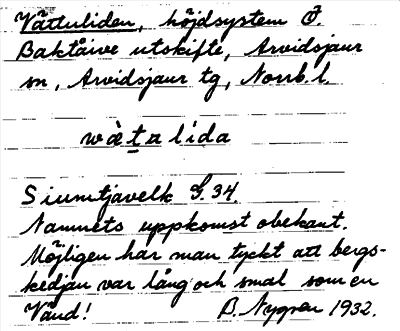 Vättuliden, höjdsystem Ö.
Baktåive utskifte, Arvidsjaur
sn, Arvidsjaur tg, Norrb. l.
wà̀ṯa lída
S iumtjavelk G. 34.
Namnets uppkomst obekant.
Möjligen har man tyckt att bergs-
kedjan var lång och smal som en
Vänd!
B. Nygren 1932.